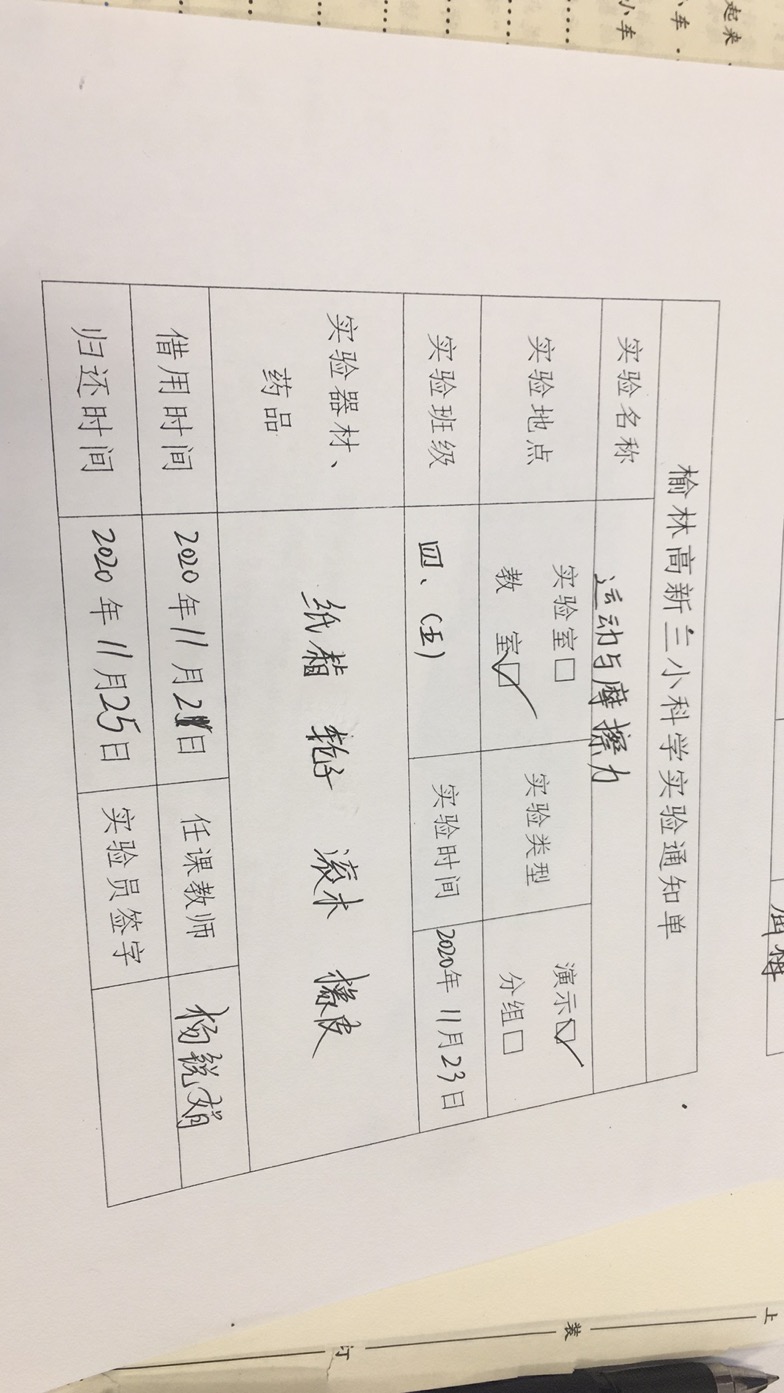 起来
小车
小车
榆林高新三小科学实验通知单
实验名称 运动与摩擦力
实验地点 实验室□ 教 室☑ 实验类型 演示☑ 分组□
实验班级 四、(五) 实验时间 2020年11月23日
实验器材、药品 纸箱 轮子 滚木 橡皮
借用时间 2020年11月21日 任课教师
归还时间 2020年11月25日 实验员签字
上
装
订